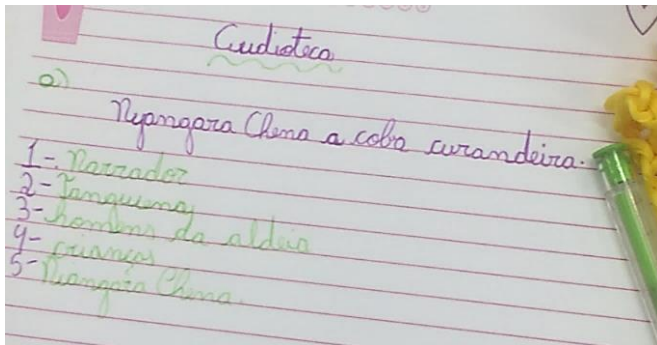 Cudioteca
a)
Nyangara Chena a coba curandeira.
1- Narrador
2- Tanguena
3- homens da aldeia
4- crianças
5- Nyangara Chena.